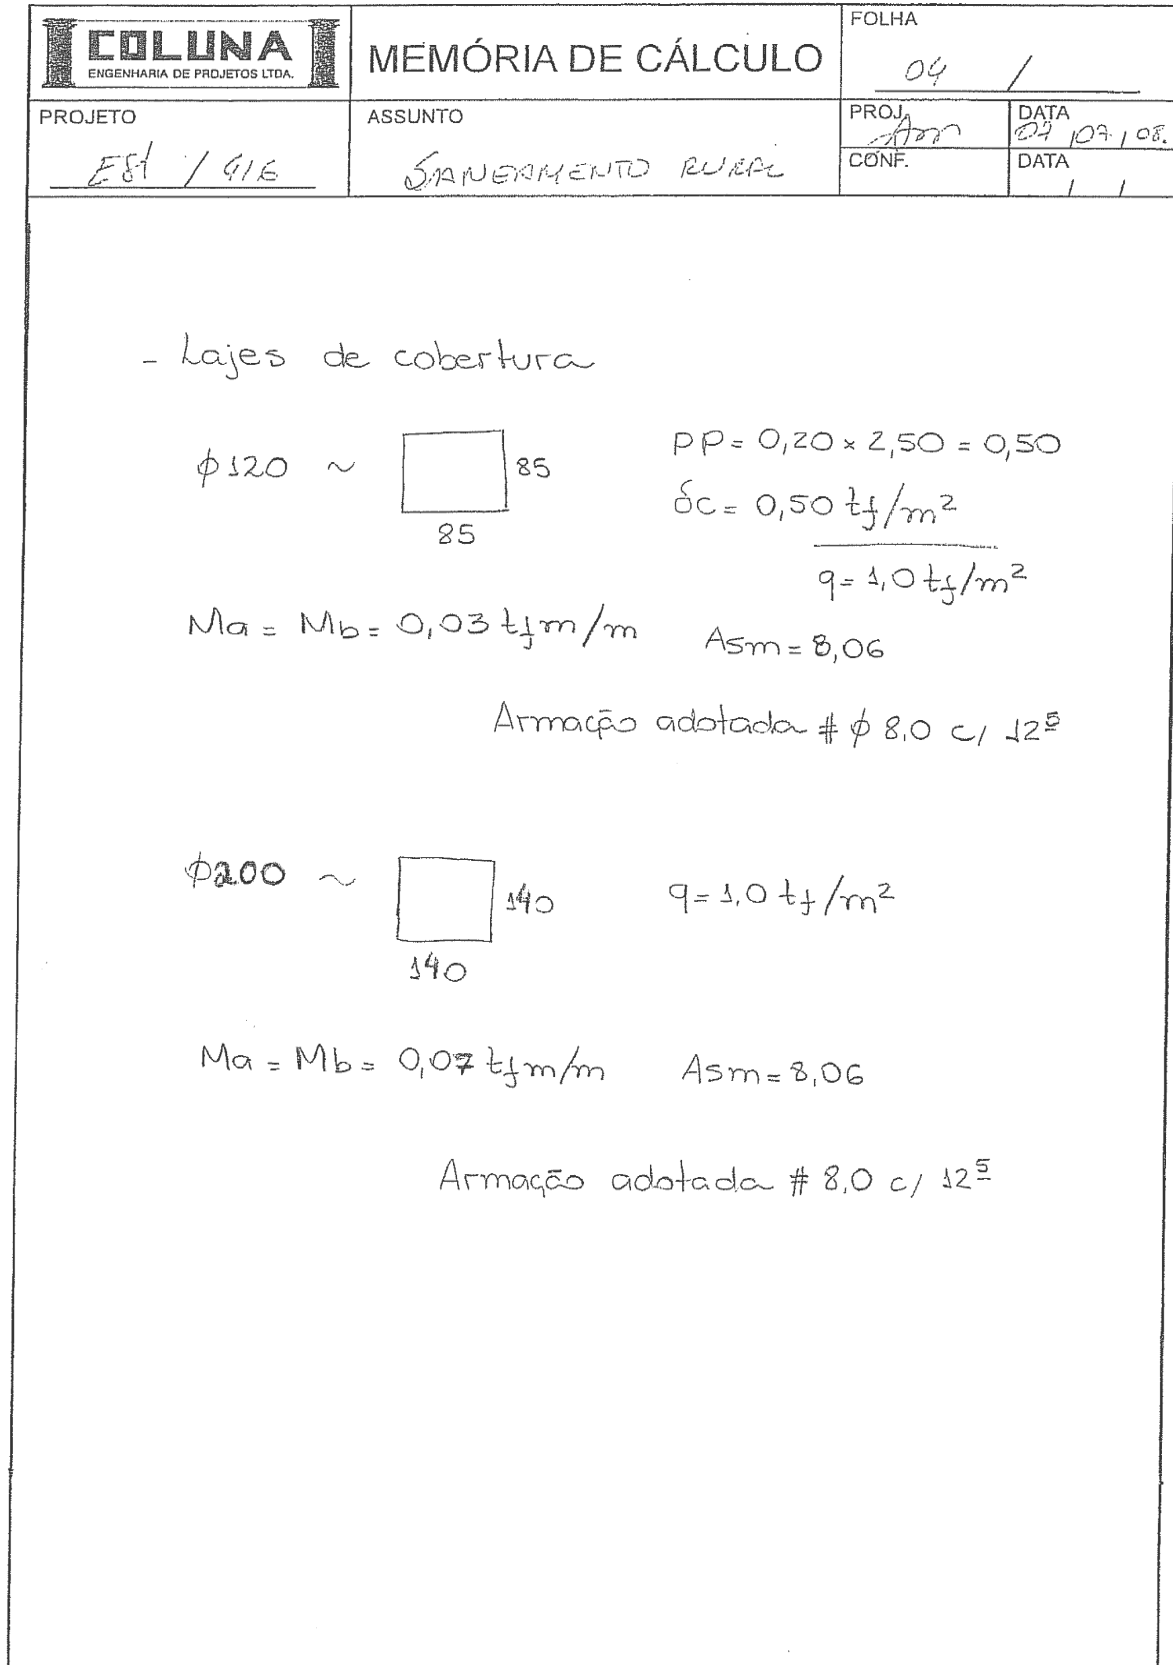 COLUNA
ENGENHARIA DE PROJETOS LTDA.
MEMÓRIA DE CÁLCULO
FOLHA
04 /
PROJETO
Est / 416
ASSUNTO
SANEAMENTO RURAL
PROJ.
DATA
07 / 07 / 08.
CONF.
DATA
/ /
- Lajes de cobertura
φ120 ~
85
85
pp = 0,20 × 2,50 = 0,50
δc = 0,50 tf/m²
q = 1,0 tf/m²
Ma = Mb = 0,03 tfm/m Asm = 8,06
Armação adotada # φ 8,0 c/ 12⁵
φ200 ~
140
140
q = 1,0 tf/m²
Ma = Mb = 0,07 tfm/m Asm = 8,06
Armação adotada # 8,0 c/ 12⁵